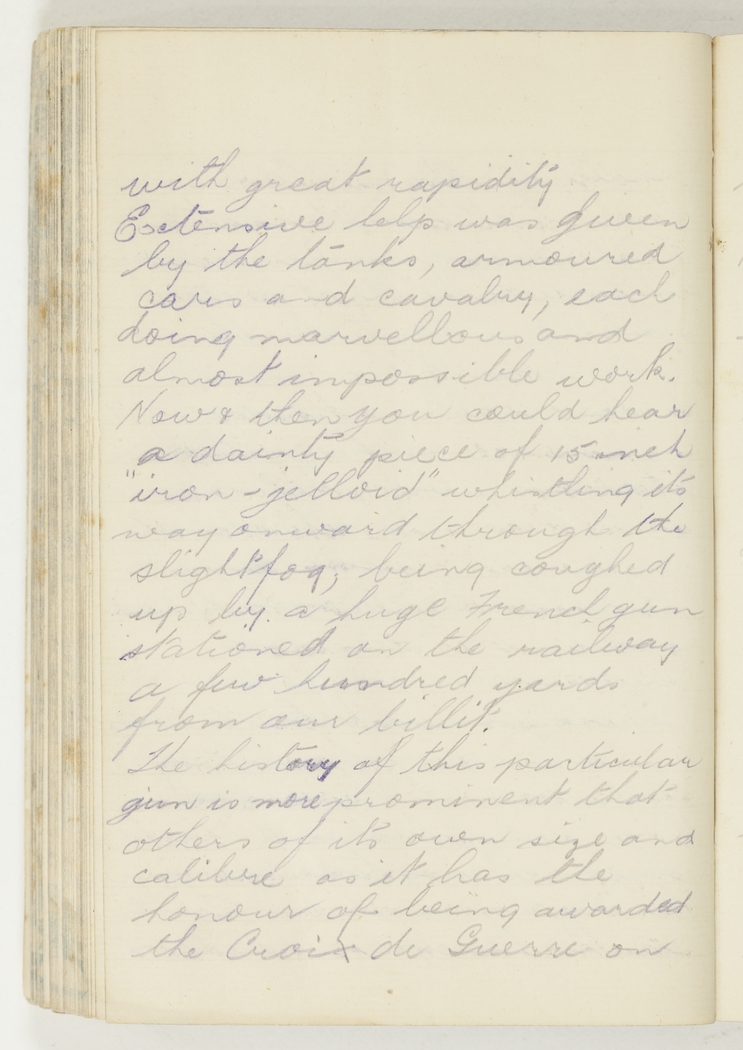 with great rapidity
Extensive help was given
by the tanks, armoured
cars and cavalry, each
doing marvellous and
almost impossible work.
Now & then you could hear
a dainty piece of 15 inch
"iron-jelloid" whistling its
way onward through the
slight fog, being coughed
up by a huge French gun
stationed on the railway
a few hundred yards
from our billit.
The history of this particular
gun is more prominent that
others of its own size and
calibre as it has the
honour of being awarded
the Croix de Guerre on